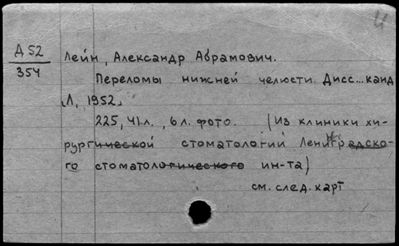 Д 52
354
Лейн, Александр Абрамович.
Переломы нижней челюсти. Дисс... канд
Л, 1952.
225, 41 л., 6 л. фото. (Из клиники хи-
рургической стоматологии Ленинградско-
го стоматологического ин-та)
см. след. карт